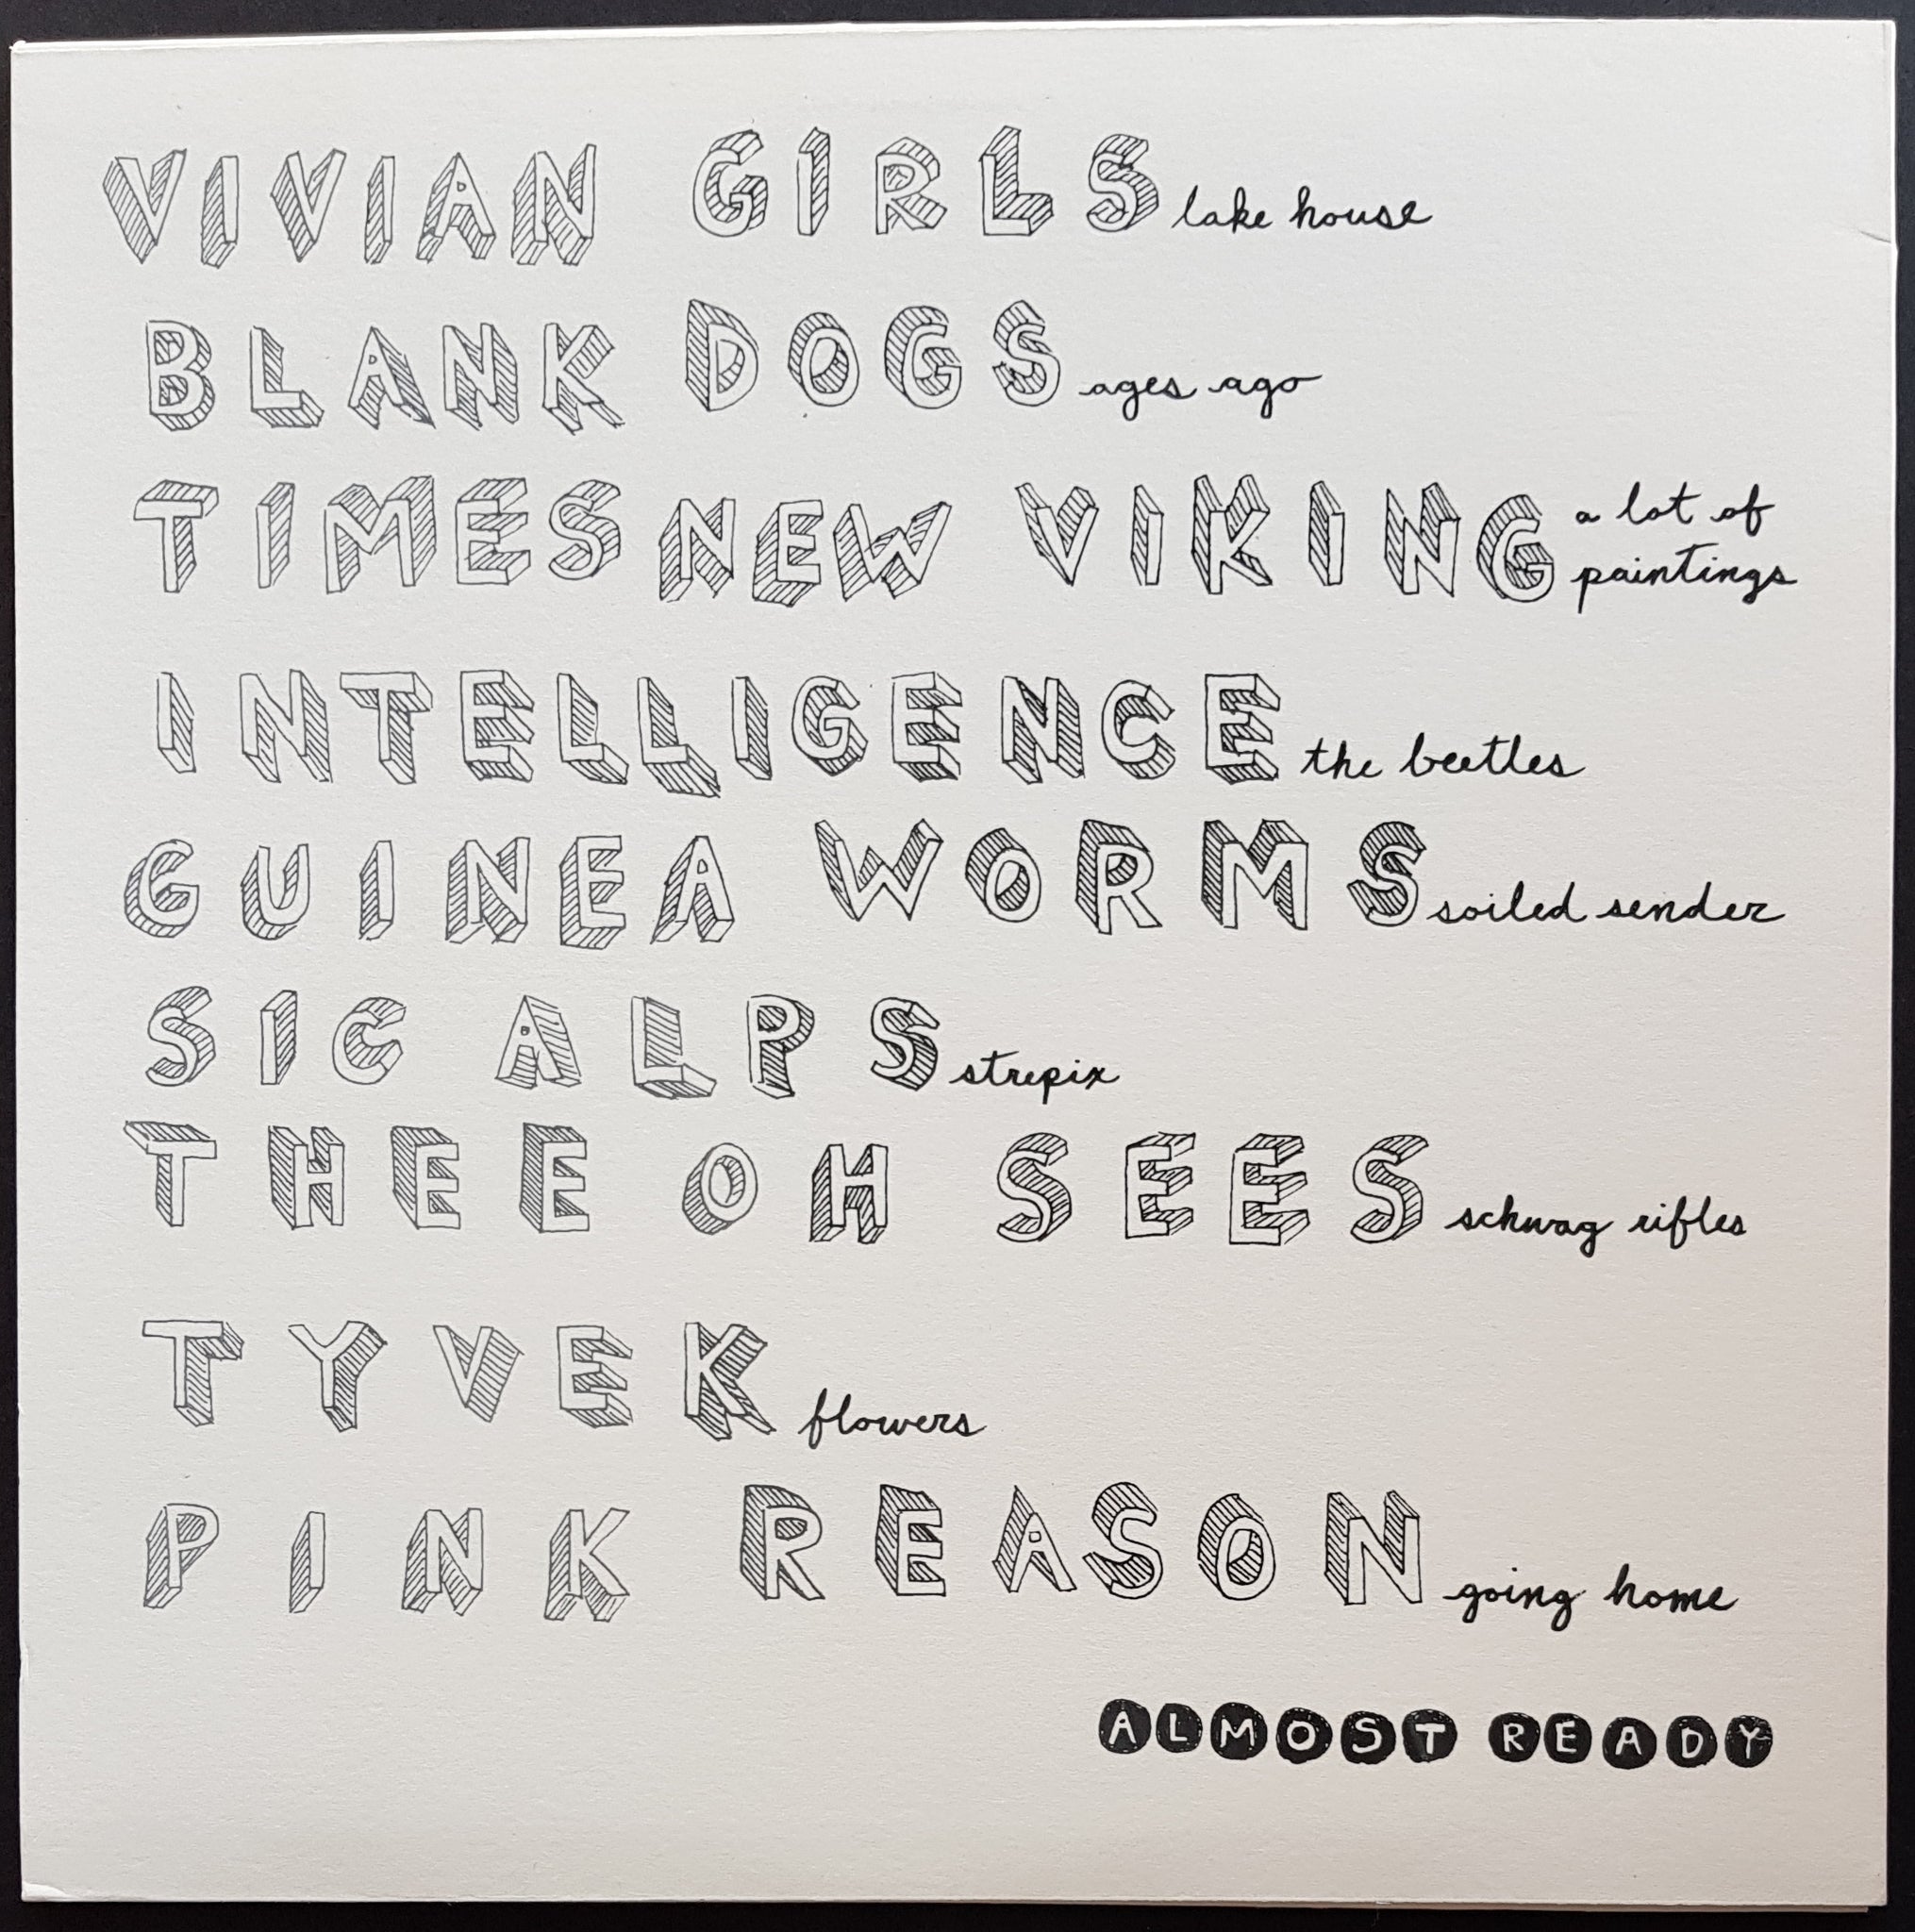 VIVIAN GIRLS lake house
BLANK DOGS ages ago
TIMES NEW VIKING a lot of
paintings
INTELLIGENCE the beetles
GUINEA WORMS soiled sender
SIC ALPS strepix
THEE OH SEES schwag rifles
TYVEK flowers
PINK REASON going home
ALMOST READY